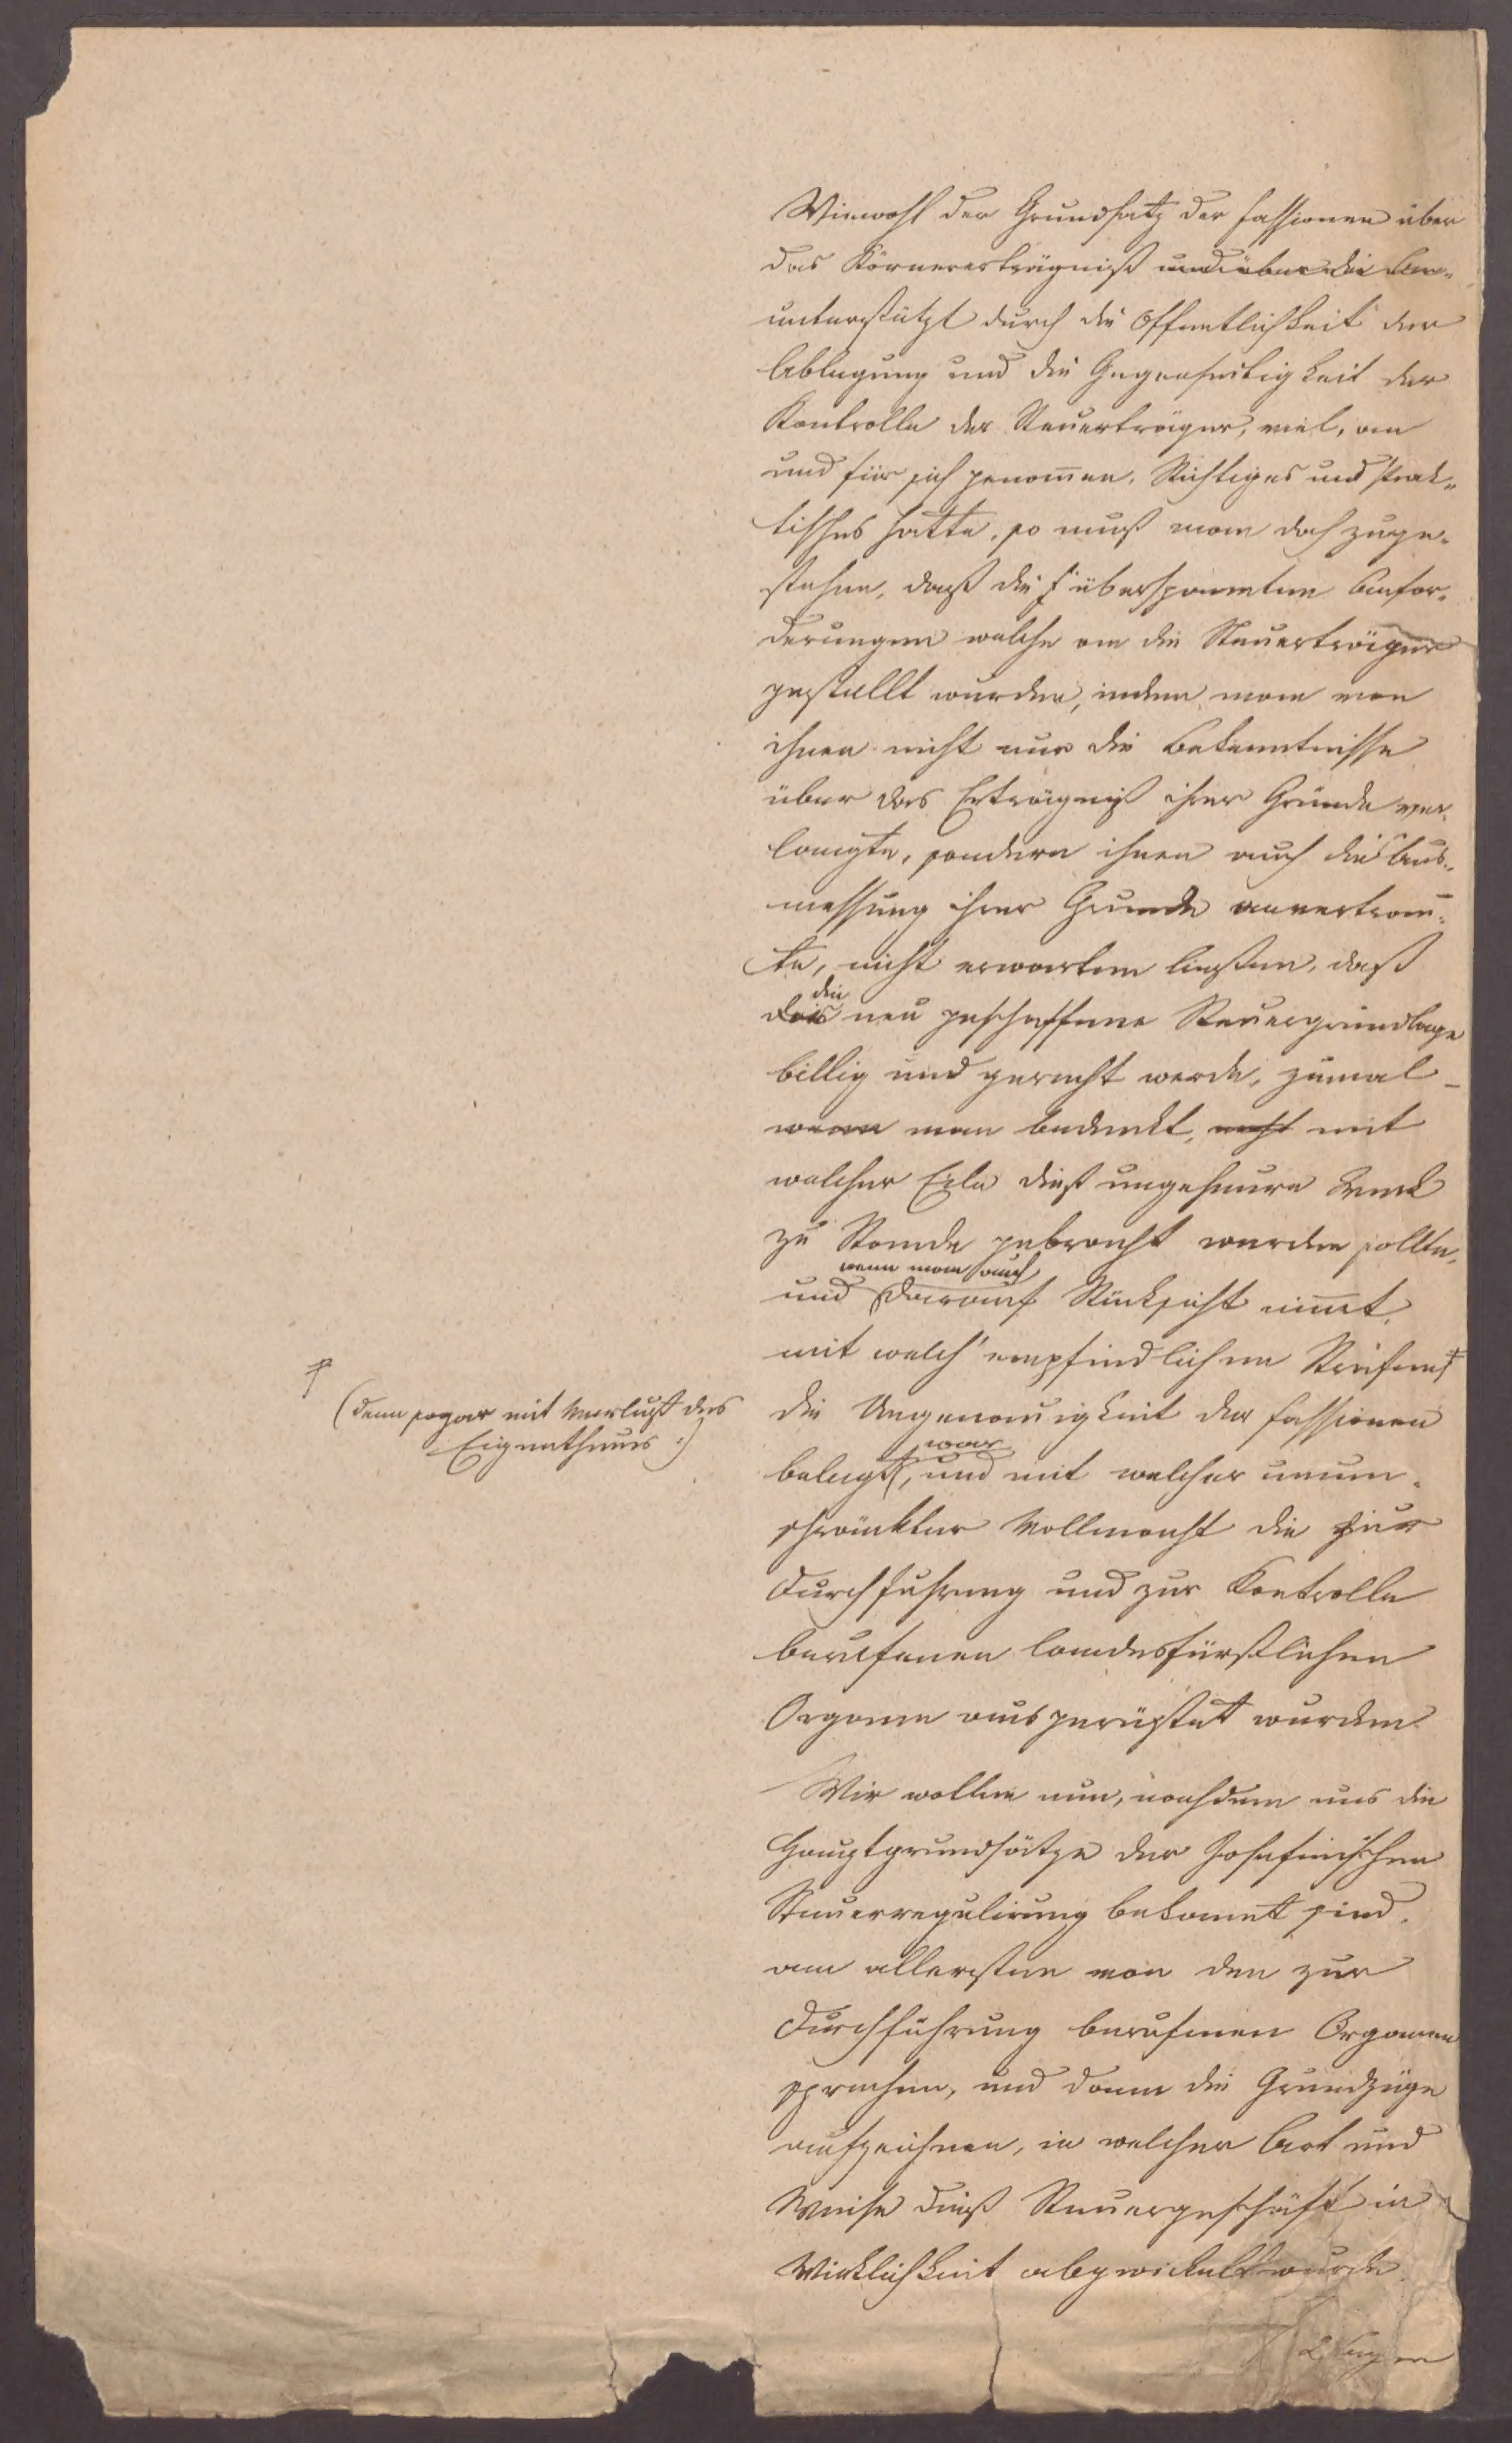 Wiewohl der Grundsatz der Fassionen über
das Körnererträgniß und über die
unterstützt durch die Öffentlichkeit der
Ablegung und die Gegenseitigkeit der
Kontrolle der Steuerträger, viel, an
und für sich genom̄en, Richtiges und Prak-
tisches hatte, so muß man doch zuge-
stehen, daß die überspannten Anfor-
derungen welche an die Steuerträger
gestellt wurden, indem man von
ihnen nicht nur die Bekenntnisse
über das Erträgniß ihrer Gründe ver-
langte, sondern ihnen auch die Aus-
messung ihrer Grunde anvertrau-
te, nicht erwarten ließen, daß
die
das neu geschaffene Steuergrundlage
billig und gerecht werde, zumal
wenn man bedenkt, nicht mit
welcher Eile dieß ungeheure Werk
zu Stande gebracht werden sollte,
wenn man auch
und darauf Rücksicht nim̄t,
mit welch' empfindlichen Strafen
die Ungenauigkeit der Fassionen
(denn sogar mit Verlust des
Eigenthums :)
war
belegt, und mit welcher unum-
schränkter Vollmacht die zur
Durchfuhrung und zur Kontrolle
berufenen landesfürstlichen
Organe ausgerüstet wurden.
Wir wollen nun, nachdem uns die
Hauptgrundsätze der Josefinischen
Steuerregulirung bekannt sind,
am allerersten von den zur
Durchführung berufenen Organen
sprechen, und dann die Grundzüge
aufzeichnen, in welcher Art und
Weise dieß Steuergeschäft in
Wirklichkeit abgewickelt wurde.